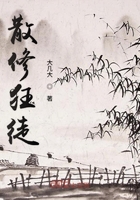 散修狂徒
大几大◎著